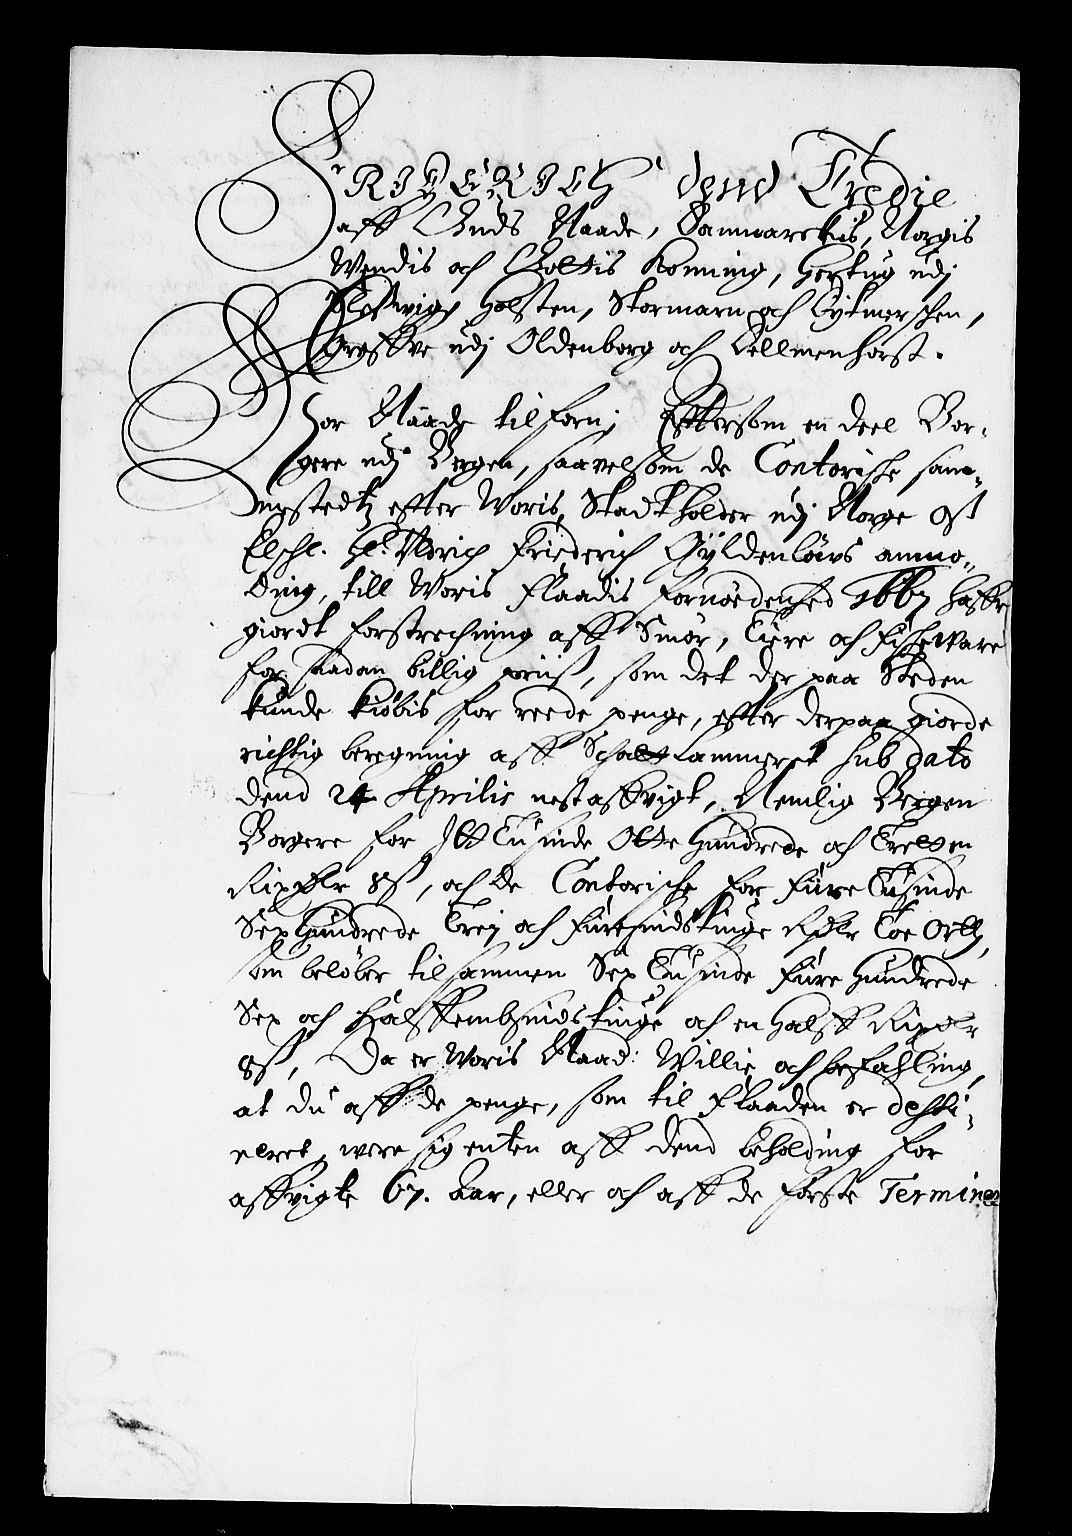 FRIDERICH dend Tredie
aff Guds Naade, Danmarckis, Norgis
Wendis och Gottis Konning, Hertug udj
Slesswig, Holsten, Stormarn och Dytmerschen,
Greffve udj Oldenborg och Dellmenhorst.
Vor Naade tilforn; Efftersom en deel Bor-
gere udj Bergen, saavelsom de Contorische sam-
mestedtz efter Woris Stadtholder udj Norge oss
Elschl. Hl: Vldrich Friederich Gÿldenlöws anmo-
ding, till Woris Flaadis fornöedenhed 1667 haffr
giordt forstrechning aff Smör, Tiere och Fischeware
for saadan billig priis, som det der paa Steden
kunde kiöbis for reede penge, efter derpaa giorde
richtig beregning aff Schattkammeret sub dato
dend 24 Aprilis nestaffvigt, Nemlig Bergen
Borgere for Itt Tusinde Otte Hundrede och Tretten
Rixdlr 8s, och de Contorische for Fiire Tusinde
Sex Hundrede Trej och Fiiresindstiuge Rdlr Toe Ortt,
som belöber tilsammen Sex Tusinde Fiire Hundrede
Sex och Halffembsindstiuge och en halff Rixdlr
8s, Da er Woris Naad: Willie och befahling,
at du aff de penge, som til Flaaden er desti-
neret, were sig enten aff dend beholding for
affvigte 67. Aar, eller och aff de förste Terminer